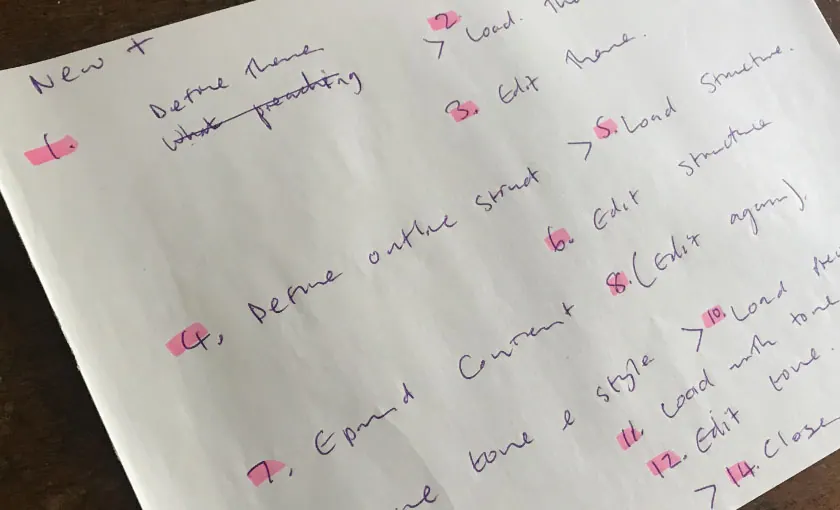 New +
1. Define Theme > 2 Load.
What preaching
3. Edit Theme.
4, Define outline struct > 5. Load Structure.
6. Edit Structure
7, Epand Content 8. (Edit again).
tone & style > 10. Load
11. Load with tone
12. Edit tone.
> 14. Close